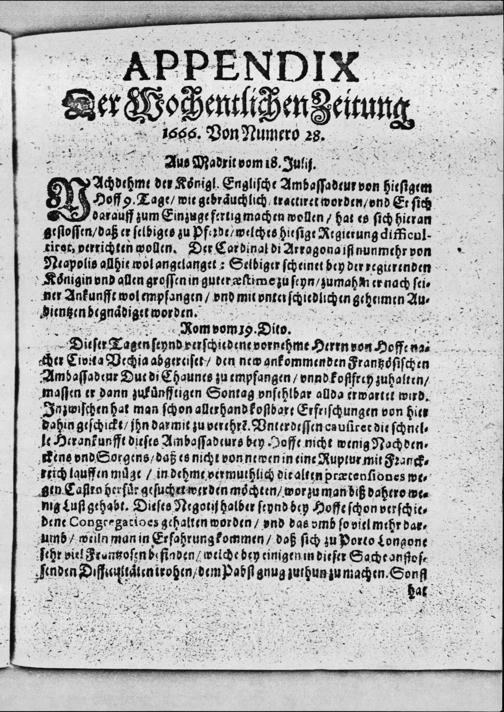 APPENDIX
Der Wochentlichen Zeitung
1666. Von Numero 28.
Aus Madrit vom 18. Julij.
NAchdehme der Königl. Englische Ambassadeur von hiesigem
Hoff 9. Tage/ wie gebräuchlich/ tractiret worden/ und Er sich
darauff zum Einzuge fertig machen wollen / hat es sich hieran
gestossen/ daß er selbiges zu Pferde/ welches hiesige Regierung difficul-
tiret, verrichten wollen. Der Cardinal di Arragona ist nunmehr von
Neapolis allhie wol angelanget : Selbiger scheinet bey der regierenden
Königin und allen grossen in guter æstime zu seyn/ zumahln er nach sei-
ner Ankunfft wol empfangen / und mit unterschiedlichen geheimen Au-
dientzen begnädiget worden.
Rom vom 19. Dito.
Dieser Tagen seynd verschiedene vornehme Herrn von Hoffe na-
cher Civita Vechia abgereiset / den new ankommenden Frantzösischen
Ambassadeur Duc di Chaunes zu empfangen / unnd kostfrey zuhalten/
massen er dann zukünfftigen Sontag unfehlbar allda erwartet wird.
Inzwischen hat man schon allerhand kostbare Erfrischungen von hier
dahin geschickt / ihn darmit zu verehrẽ. Unterdessen causiret die schnel-
le Herankunfft dieses Ambassadeurs bey Hoffe nicht wenig Nachden-
ckens und Sorgens/ daß es nicht von newen in eine Ruptur mit Franck-
reich lauffen müge / in dehme vermuthlich die alten prætensiones we-
gen Castro herfür gesuchet werden möchten/ worzu man biß dahero we-
nig Lust gehabt. Dieses Negotij halber seynd bey Hoffe schon verschie-
dene Congregationes gehalten worden / und das umb so viel mehr dar-
umb / weiln man in Erfahrung kommen / daß sich zu Porto Longone
sehr viel Frantzosen befinden / welche bey einigen in dieser Sache anstos-
senden Difficultäten drohen/ dem Pabst gnug zuthun zu machen. Sonst
hat